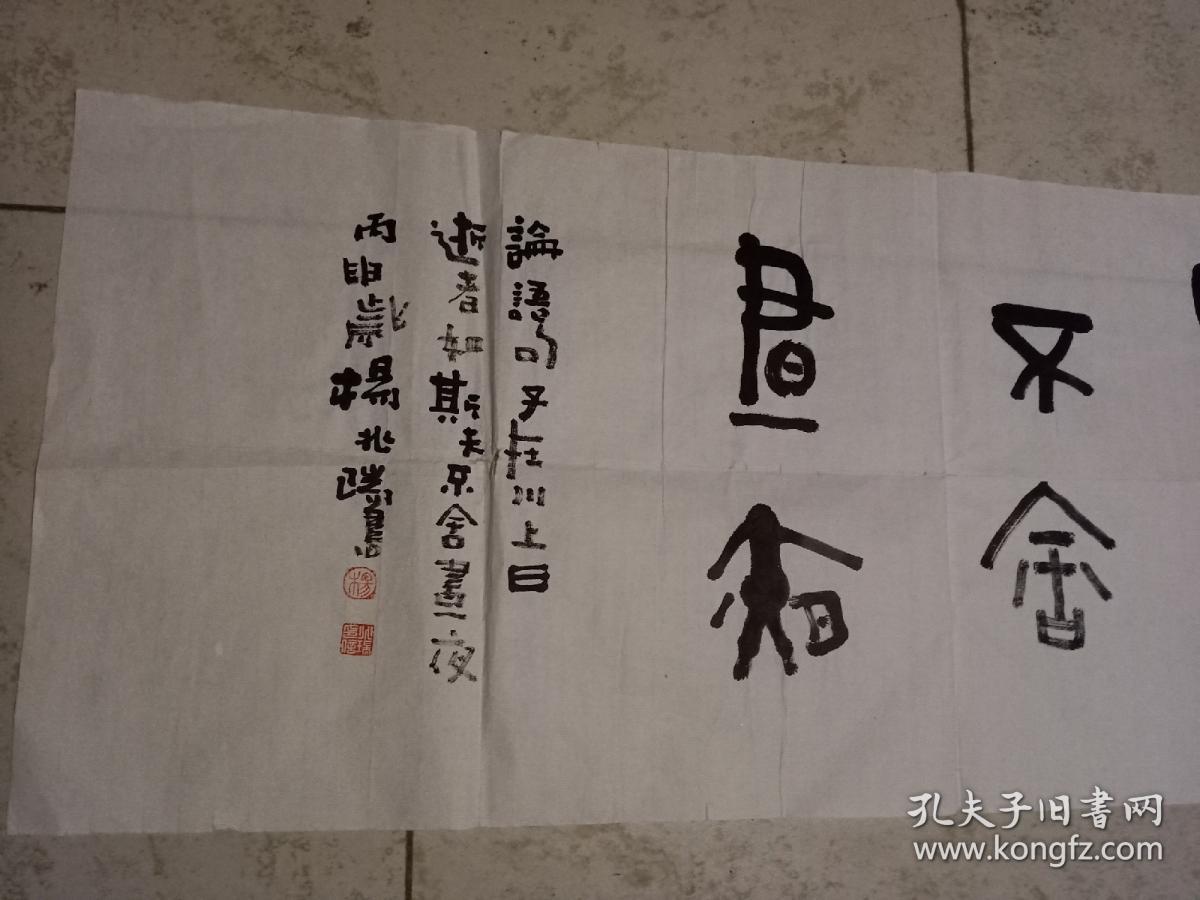 不舍
晝夜
論語句子在川上曰
逝者如斯夫不舍晝夜
丙申歲楊兆瑞書
孔夫子旧書网
www.kongfz.com